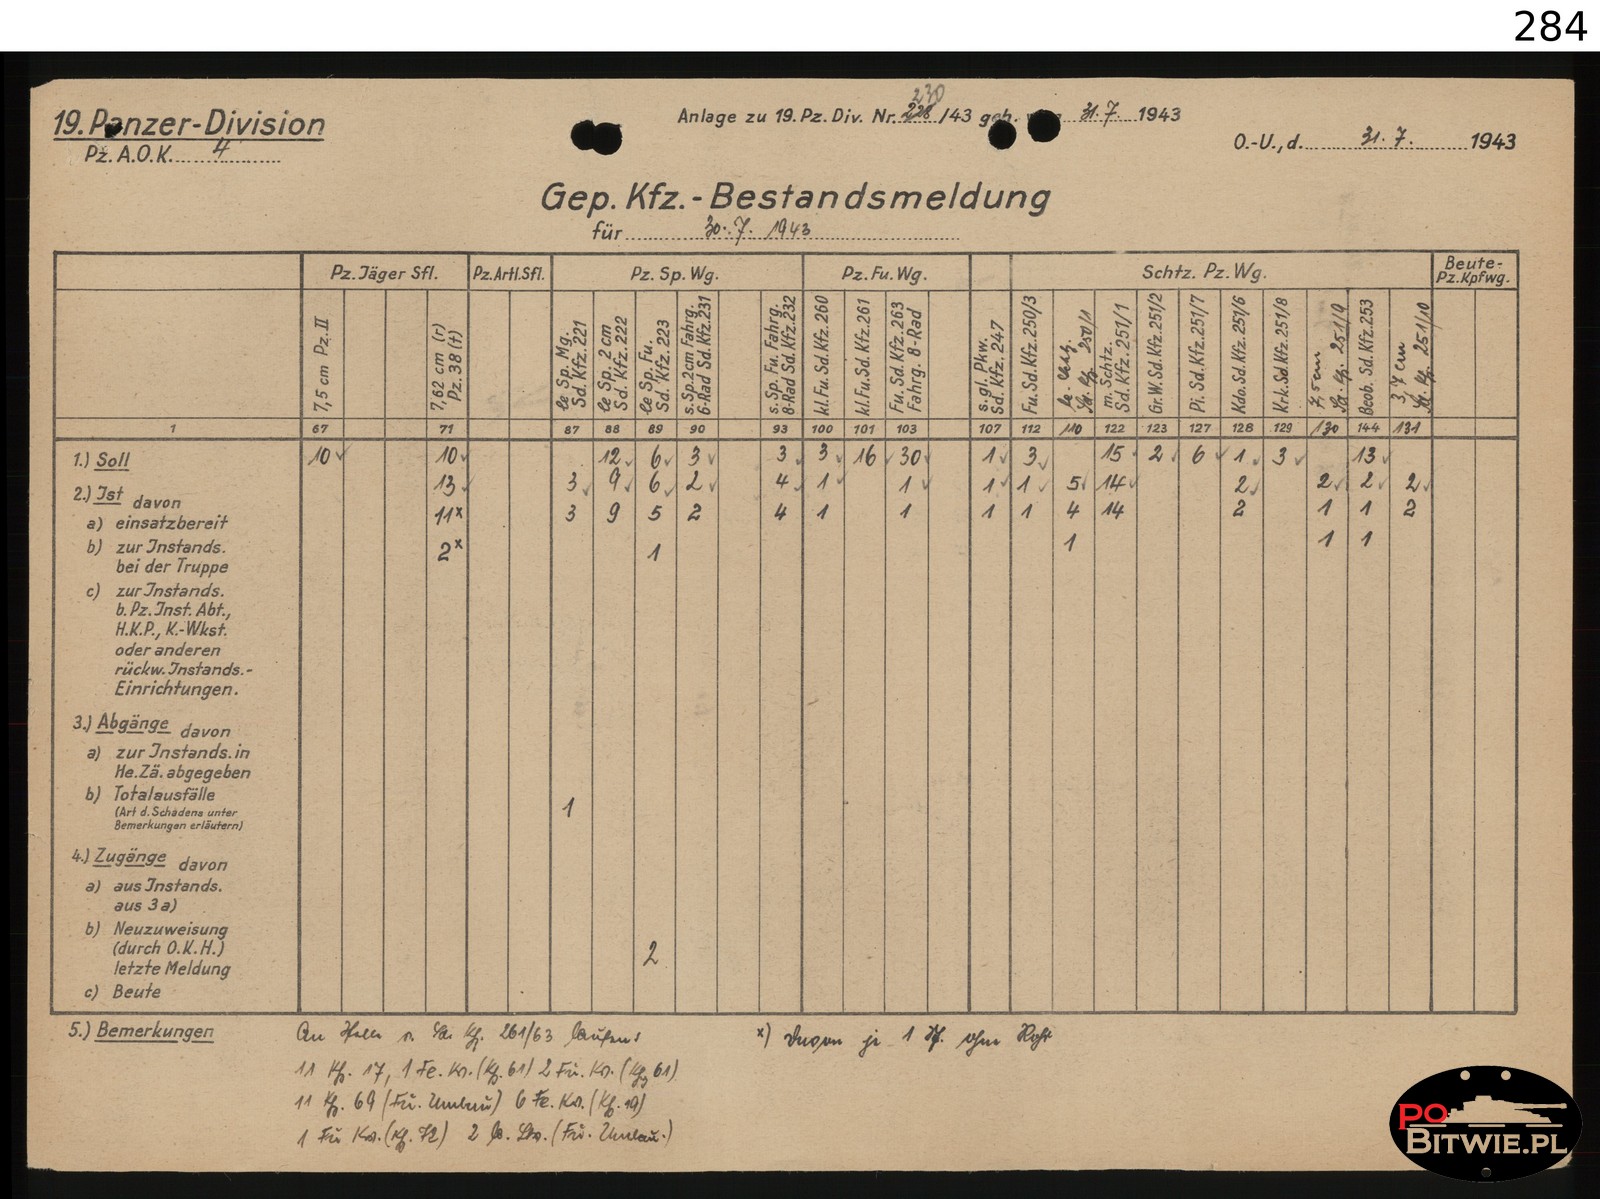 284
19. Panzer-Division
Pz. A.O.K. 4
Anlage zu 19. Pz. Div. Nr. 230 /43 geh. 31.7. 1943
O.-U., d. 31. 7. 1943
Gep. Kfz.-Bestandsmeldung
für 30. 7. 1943
Pz. Jäger Sfl. Pz. Artl. Sfl. Pz. Sp. Wg. Pz. Fu. Wg. Schtz. Pz. Wg. Beute-
Pz. Kpfwg.
7,5 cm Pz. II
7,62 cm (r)
Pz. 38 (t)
le Sp. Mg.
Sd. Kfz. 221
le Sp. 2 cm
Sd. Kfz. 222
le Sp. Fu.
Sd. Kfz. 223
s. Sp. 2cm Fahrg.
6-Rad Sd. Kfz. 231
s. Sp. Fu. Fahrg.
8-Rad Sd. Kfz. 232
kl. Fu. Sd. Kfz. 260
kl. Fu. Sd. Kfz. 261
Fu. Sd. Kfz. 263
Fahrg. 8-Rad
s. gl. Pkw.
Sd. Kfz. 247
Fu. Sd. Kfz. 250/3
le. Schtz.
Sd. Kfz. 250/1
m. Schtz.
Sd. Kfz. 251/1
Gr. W. Sd. Kfz. 251/2
Pi. Sd. Kfz. 251/7
Kdo. Sd. Kfz. 251/6
Krk. Sd. Kfz. 251/8
7,5 cm
Sd. Kfz. 251/9
Beob. Sd. Kfz. 253
3,7 cm
Sd. Kfz. 251/10
1 67 71 87 88 89 90 93 100 101 103 107 112 110 122 123 127 128 129 130 144 131
1.) Soll 10 10 12 6 3 3 3 16 30 1 3 15 2 6 1 3 13
13 3 9 6 2 4 1 1 1 1 5 14 2 2 2 2
2.) Ist davon
a) einsatzbereit 11x 3 9 5 2 4 1 1 1 1 4 14 2 1 1 2
b) zur Instands. 2x 1 1 1 1
bei der Truppe
c) zur Instands.
b. Pz. Inst. Abt.,
H.K.P., K.-Wkst.
oder anderen
rückw. Instands.-
Einrichtungen.
3.) Abgänge davon
a) zur Instands. in
He. Zä. abgegeben
b) Totalausfälle 1
(Art d. Schadens unter
Bemerkungen erläutern)
4.) Zugänge davon
a) aus Instands.
aus 3a)
b) Neuzuweisung
(durch O.K.H.) 2
letzte Meldung
c) Beute
5.) Bemerkungen An Stelle v. Sd. Kfz. 261/63 laufen: x) davon je 1 ohne Rohr
11 Kfz. 17, 1 Fe. Kw. (Kfz. 61) 2 Fu. Kw. (Kfz. 61)
11 Kfz. 69 (Fu. Umbau) 6 Fe. Kw. (Kfz. 19)
1 Fu Kw. (Kfz. 72) 2 (Fu. Umbau.)
PO
BITWIE.PL